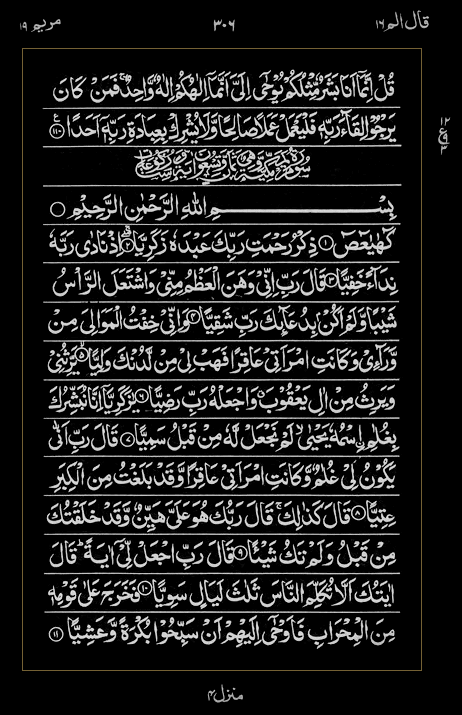 قال الم ١٦
٣٠٦
مريم ١٩
قُلْ اِنَّمَاۤ اَنَا بَشَرٌ مِّثْلُكُمْ يُوْحٰۤى اِلَيَّ اَنَّمَاۤ اِلٰهُكُمْ اِلٰهٌ وَّاحِدٌ ۚ فَمَنْ كَانَ
يَرْجُوْا لِقَآءَ رَبِّهٖ فَلْيَعْمَلْ عَمَلًا صَالِحًا وَّلَا يُشْرِكْ بِعِبَادَةِ رَبِّهٖۤ اَحَدًا ١١٠
ع
١٢
ع
٩
٣
سُوْرَةُ مَرْيَمَ مَكِّيَّةٌ وَّهِيَ ثَمَانٌ وَّتِسْعُوْنَ اٰيَةً وَّسِتُّ رُكُوْعَاتٍ
بِسْمِ اللّٰهِ الرَّحْمٰنِ الرَّحِيْمِ
كٓهٰيٰعٓصٓ ١ ذِكْرُ رَحْمَتِ رَبِّكَ عَبْدَهٗ زَكَرِيَّا ٢ اِذْ نَادٰى رَبَّهٗ
نِدَآءً خَفِيًّا ٣ قَالَ رَبِّ اِنِّيْ وَهَنَ الْعَظْمُ مِنِّيْ وَاشْتَعَلَ الرَّاْسُ
شَيْبًا وَّلَمْ اَكُنْۢ بِدُعَآئِكَ رَبِّ شَقِيًّا ٤ وَاِنِّيْ خِفْتُ الْمَوَالِيَ مِنْ
وَّرَآءِيْ وَكَانَتِ امْرَاَتِيْ عَاقِرًا فَهَبْ لِيْ مِنْ لَّدُنْكَ وَلِيًّا ٥ يَّرِثُنِيْ
وَيَرِثُ مِنْ اٰلِ يَعْقُوْبَ ۖ وَاجْعَلْهُ رَبِّ رَضِيًّا ٦ يٰزَكَرِيَّاۤ اِنَّا نُبَشِّرُكَ
بِغُلٰمِ ࣙاسْمُهٗ يَحْيٰى ۙ لَمْ نَجْعَلْ لَّهٗ مِنْ قَبْلُ سَمِيًّا ٧ قَالَ رَبِّ اَنّٰى
يَكُوْنُ لِيْ غُلٰمٌ وَّكَانَتِ امْرَاَتِيْ عَاقِرًا وَّقَدْ بَلَغْتُ مِنَ الْكِبَرِ
عِتِيًّا ٨ قَالَ كَذٰلِكَ ۚ قَالَ رَبُّكَ هُوَ عَلَيَّ هَيِّنٌ وَّقَدْ خَلَقْتُكَ
مِنْ قَبْلُ وَلَمْ تَكُ شَيْـًٔا ٩ قَالَ رَبِّ اجْعَلْ لِّيْۤ اٰيَةً ؕ قَالَ
اٰيَتُكَ اَلَّا تُكَلِّمَ النَّاسَ ثَلٰثَ لَيَالٍ سَوِيًّا ١٠ فَخَرَجَ عَلٰى قَوْمِهٖ
مِنَ الْمِحْرَابِ فَاَوْحٰۤى اِلَيْهِمْ اَنْ سَبِّحُوْا بُكْرَةً وَّعَشِيًّا ١١
منزل ٤